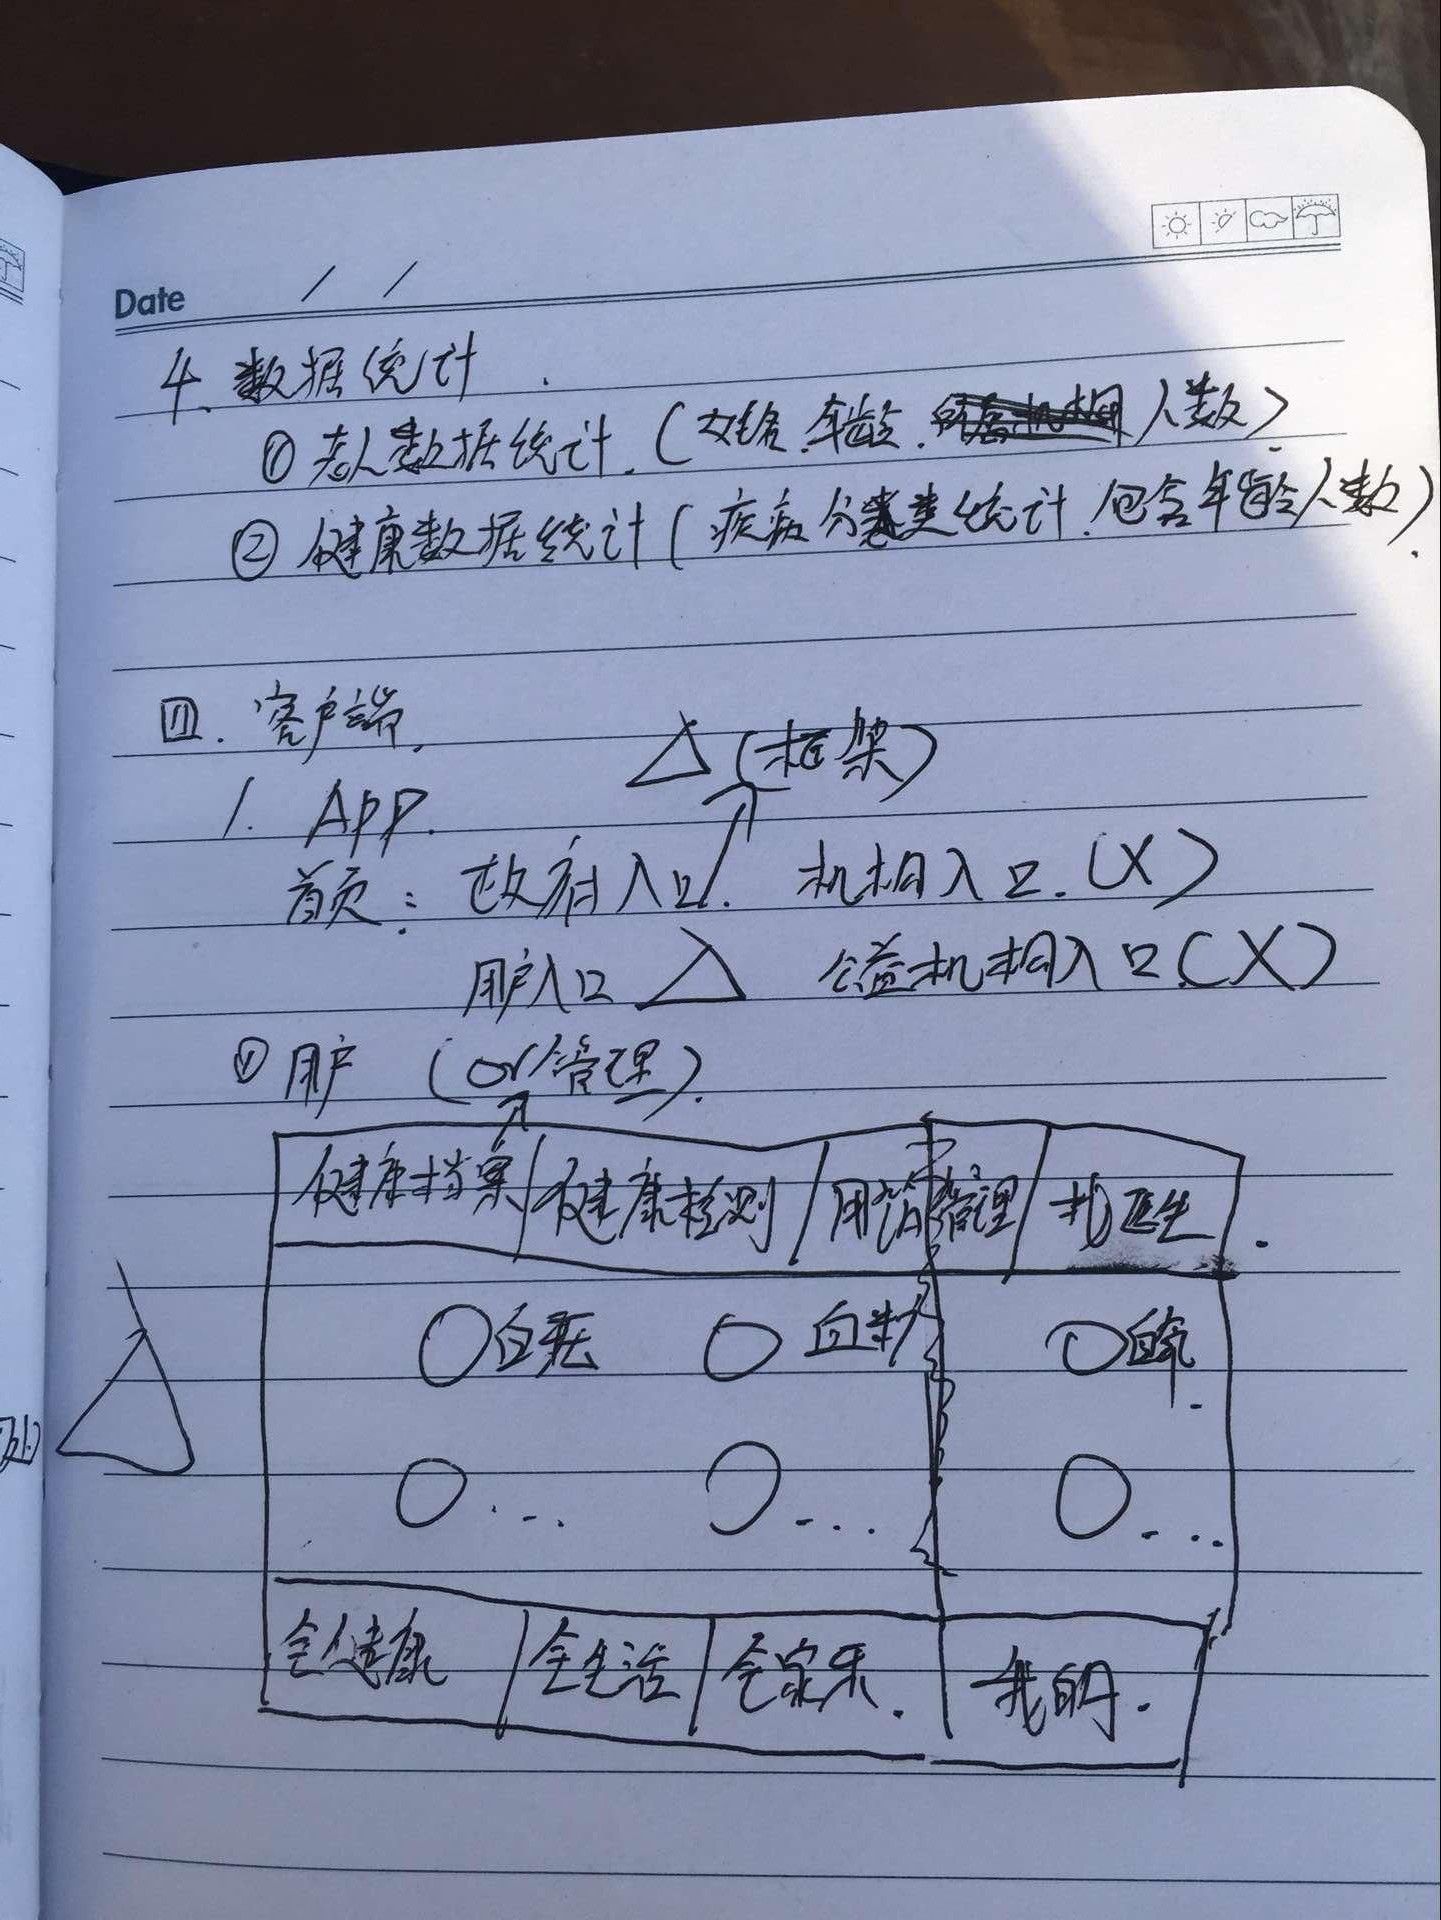 Date / /
4. 数据统计.
① 老人数据统计.(姓名.年龄.人数)
② 健康数据统计(疾病分类统计.包含年龄人数).
四.客户端.
1. App.
△(框架)
首页: 政府入口. 机构入口.(X)
用户入口 △ 公益机构入口(X)
① 用户 (or管理).
健康档案 健康检测 用药管理 我医生.
血压 血
...
... ... ...
全健康 全生活 全家乐. 我的.